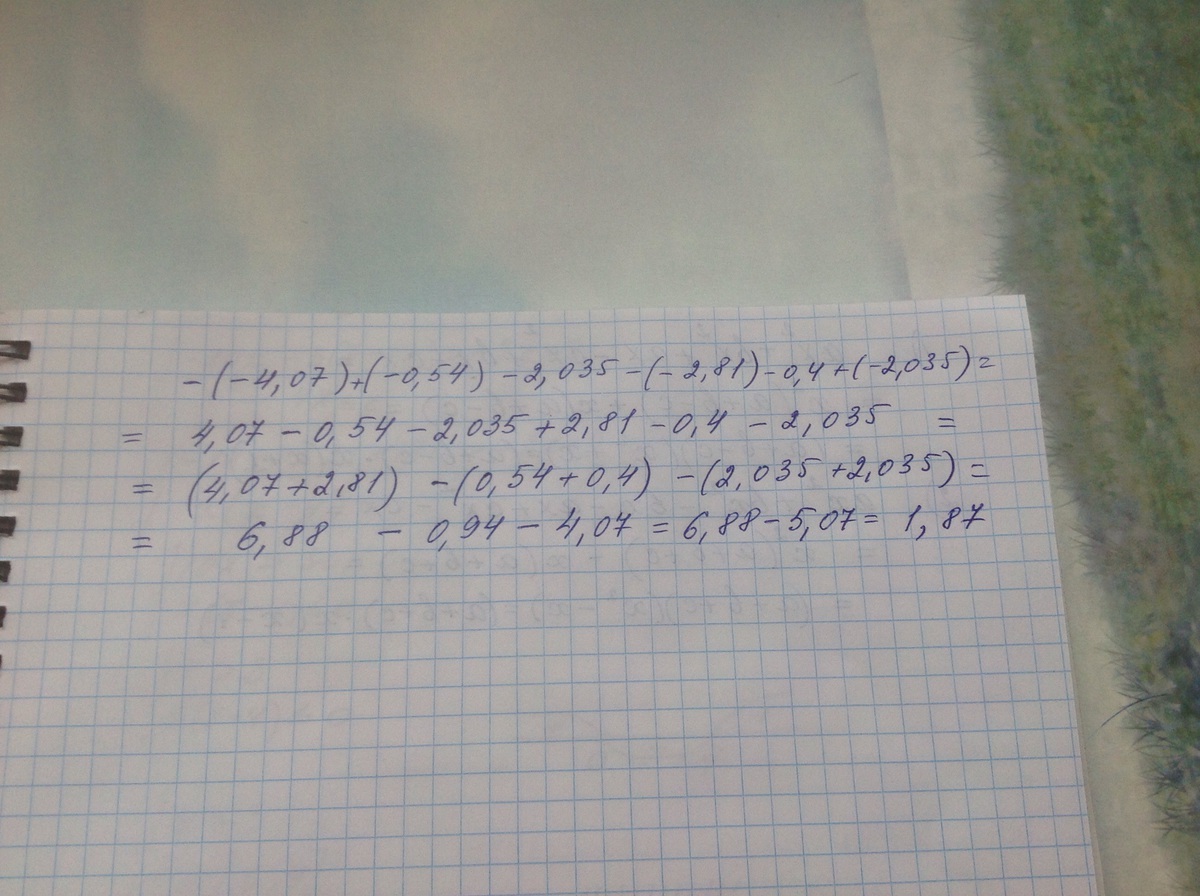 -(-4,07)+(-0,54)-2,035-(-2,81)-0,4+(-2,035)=
= 4,07-0,54-2,035+2,81-0,4-2,035 =
= (4,07+2,81) -(0,54+0,4) -(2,035+2,035)=
= 6,88 - 0,94-4,07=6,88-5,07= 1,87